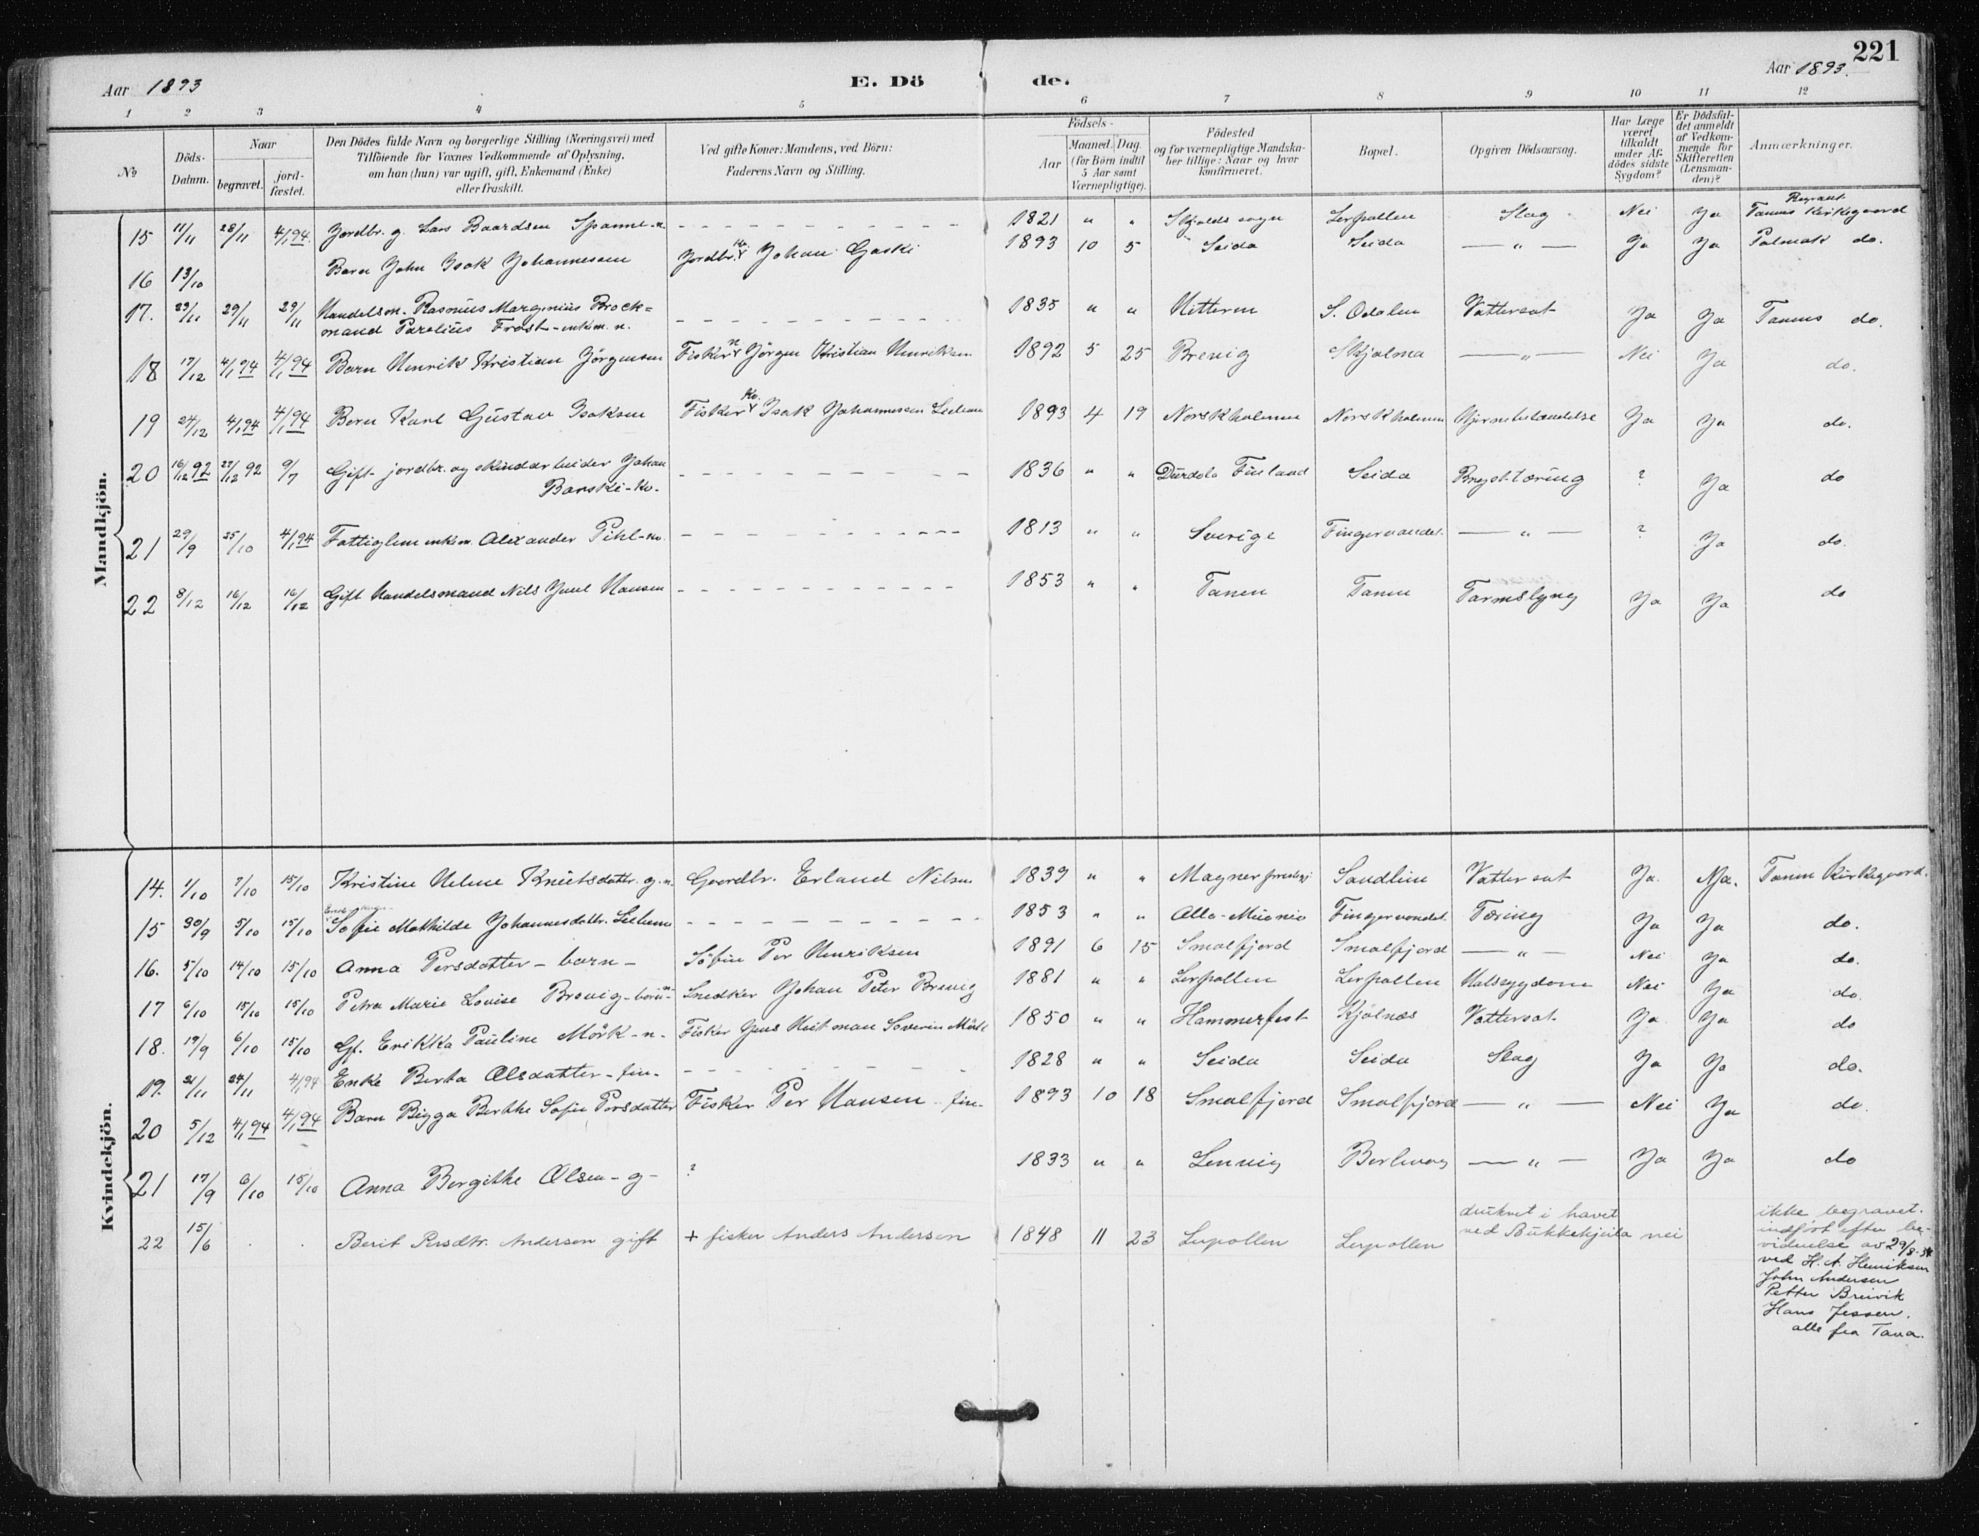 221
Aar 1893
E. Dö de.
Aar 1893.
1 2 3 4 5 6 7 8 9 10 11 12
No
Döds-Datum.
Naar
begravet.
jord-fæstet.
Den Dödes fulde Navn og borgerlige Stilling (Næringsvei) med
Tilföiende for Voxnes Vedkommende af Oplysning,
om han (hun) var ugift, gift, Enkemand (Enke)
eller fraskilt.
Ved gifte Koner: Mandens, ved Börn:
Faderens Navn og Stilling.
Födsels-
Aar
Maaned. Dag.
(for Börn indtil
5 Aar samt
Værnepligtige).
Födested
og for værnepligtige Mandska-
ber tillige: Naar og hvor
konfirmeret.
Bopæl.
Opgiven Dödsaarsag.
Har Læge
været
tilkaldt
under Af-
dödes sidste
Sygdom?
Er Dödsfal-
det anmeldt
af Vedkom-
mende for
Skifteretten
(Lensman-
den)?
Anmærkninger.
Mandkjön.
15 11/11 28/11 4/1 94. Jordbr. g. Lars Baardsen Spanne-n. 1821 " " Skjolds sogn Lerpollen Slag Nei Ja Begravet Tanens Kirkegaard
16 13/10 Barn John Isak Johannesen Jordbr. Johan Gaski 1893 10 5 Seida Seida — " — Ja Ja Polmak do.
17. 23/11 29/11 29/11 Handelsm. Rasmus Marginius Brock=
mand Parelius Frost-enkem. n. 1835 " " Hitteren S. Odalen Vattersot Ja Ja Tanens do.
18 17/12 4/1 94 4/1 94 Barn Henrik Kristian Jörgensen Fisker Jörgen Kristian Henriksen 1892 5 25 Brevig Skjolma — " — Nei Ja do.
19 24/12 4/1 94 4/1 94 Barn Karl Gustav Isaksen Fisker Isak Johannesen 1893 4 19 Norskholmen Norskholmen Hjernebetændelse Ja Ja do.
20 16/12 92 27/12 92 9/7 Gift jordbr. og skindarbeider Johan
Barski-kv. 1836 " " Finland Seida Brysttæring ? Ja do
21 29/9 25/10 4/1 94 Fattiglem enkem. Alexander Pihl-nv. 1813 " " Sverige Fingervandet. — " — ? Ja do.
22 8/12 16/12 16/12 Gift Handelsmand Nils Juul Hansen 1853 " " Tanen Tanen Tarmslyng Ja Ja do
Kvindekjön.
14. 1/10 7/10 15/10 Kristine Helene Knutsdatter. g. n. Gaardbr. Erland Nilsen 1839 " " Sandlien Vattersot Ja. Ja. Tanen Kirkegaard.
15 30/9 5/10 15/10 Sofie Mathilde Johannesdatter 1853 " " Alto-Muonio Fingervandet. Tæring Ja Ja do.
16. 5/10 14/10 15/10 Anna Persdatter - barn - Söfin Per Henriksen 1891 6 15 Smalfjord Smalfjord — " — Nei Ja do.
17 6/10 15/10 15/10 Petra Marie Lovise Brevig-barn Snedker Johan Peter Brevig 1881 " " Lerpollen Lerpollen Halssygdom Nei Ja do.
18. 19/9 6/10 15/10 Gf. Erikka Pauline Mörk-n. Fisker Jens Severin Mörk 1850 " " Hammerfest Kjölnæs Vattersot. Ja Ja do
19. 21/11 24/11 4/1 94 Enke Berta Olsdatter-fin- 1828 " " Seida Seida Slag Ja Ja do.
20 5/12 4/1 94 4/1 94 Barn Bigga Berthe Sofie Persdatter Fisker Per Hansen fin- 1893 10 18 Smalfjord Smalfjord — " — Nei Ja do.
21 17/9 6/10 15/10 Anna Bergithe Olsen - g - ? 1833 " " Lenvig Berlevaag — " — Ja Ja do
22 15/6 Berit Persdtr. Andersen gift + fisker Anders Andersen 1848 11 23 Lerpollen Lerpollen druknet i havet
ved Bukkekjeila nei
ikke begravet.
indfört efter be-
vidnelse av 29/8-34
ved H. A. Henriksen
John Andersen
Petter Breivik
Hans Jessen.
alle fra Tana.